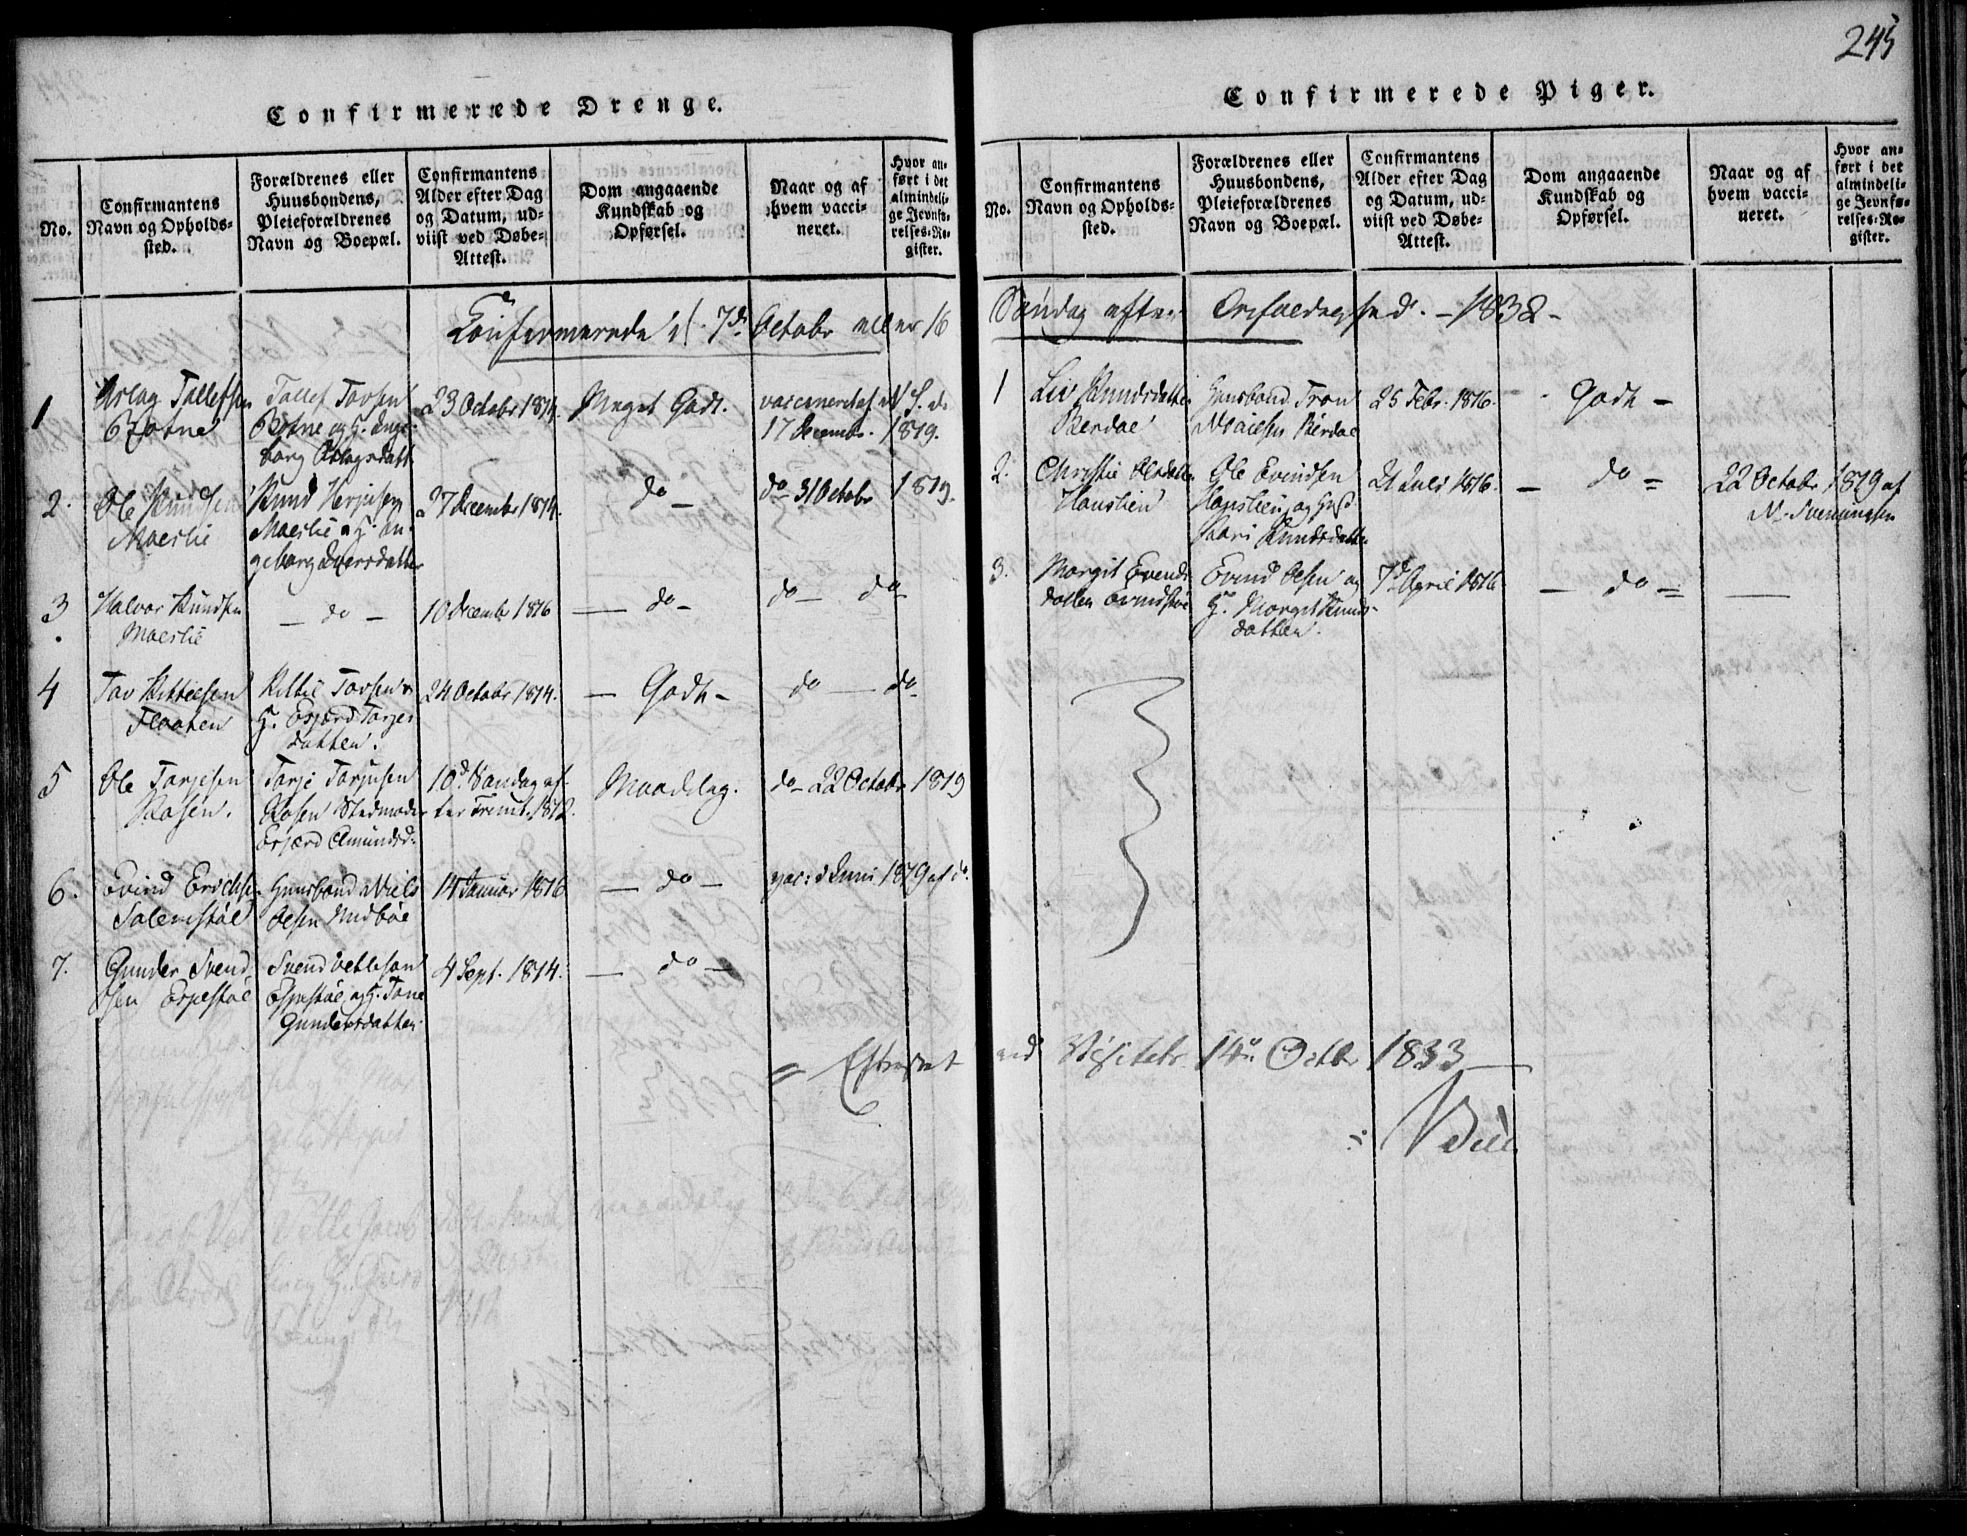 245
Confirmerede Drenge.
No.
Confirmantens
Navn og Opholds-
sted.
Forældrenes eller
Huusbondens,
Pleieforældrenes
Navn og Boepæl.
Confirmantens
Alder efter Dag
og Datum, ud-
viist ved Døbe-
Attest.
Dom angaaende
Kundskab og
Opførsel.
Naar og af
hvem vacci-
neret.
Hvor an-
ført i det
almindeli-
ge Jevnfø-
relses-Re-
gister.
Confirmerede d. 7de Octobr eller 16
1
Aslag Tallefsen
Bøtne
Tallef Torsen
Bøtne og H. Inge-
borg Aslagsdatt.
23 Octobr 1814.
Meget Godt.
vaccineret af
17 Decembr. 1819.
2.
Ole Knudsen
Maerlie
Knud Herjusen
Maerlie og H. In-
geborg
27 Decembr 1814.
do -
do 31 Octobr 1819.
3
Halvor Knudsen
Maerlie
- do -
10 Decembr 1816
- do -
do - do
4
Tov Kittilsen
Flaaten
Kittil Tovsen
H. Torjes-
datter.
24 Octobr 1814.
- Godt -
do - do
5
Ole Tarjesen
Rosen.
Tarje Tarjusen
Rosen Stedmoder
Amundsd.
10de Søndag ef-
ter Trinit. 1812.
Maadelig.
do 22 Octobr 1819
6.
Evind Erichsen
Huusbond Niels
Olsen Midbøe
14 Januar 1816
- do -
vac: d Juni 1819 af do.
7.
Gunder Svend-
sen Espestøl
Svend Vetlesen
Espestøl og H. Tone
Gundersdatter.
4 Sept. 1814.
- do -
Confirmerede Piger.
No.
Confirmantens
Navn og Opholds-
sted.
Forældrenes eller
Huusbondens,
Pleieforældrenes
Navn og Boepæl.
Confirmantens
Alder efter Dag
og Datum, ud-
viist ved Døbe-
Attest.
Dom angaaende
Kundskab og
Opførsel.
Naar og af
hvem vacci-
neret.
Hvor an-
ført i det
almindeli-
ge Jevnfø-
relses-Re-
gister.
Søndag efter Trefoldighed. - 1832 -
1
Liv Knudsdatter
Berdal
Huusbond Tron
Berdal
25 Febr. 1816.
- Godt -
2.
Christie Olsdatter
Haustien
Ole Evindsen
Haustien og Hus.
Kaari Knudsdatter
21 Juli 1816.
- do -
22 Octobr 1819 af
N. Svenungsen
3.
Margit Evinds-
datter
Evind Olsen og
H. Margit Knuds-
datter.
7de April 1816
- do -
Efterseet ved Visitats 14de Octbr 1833